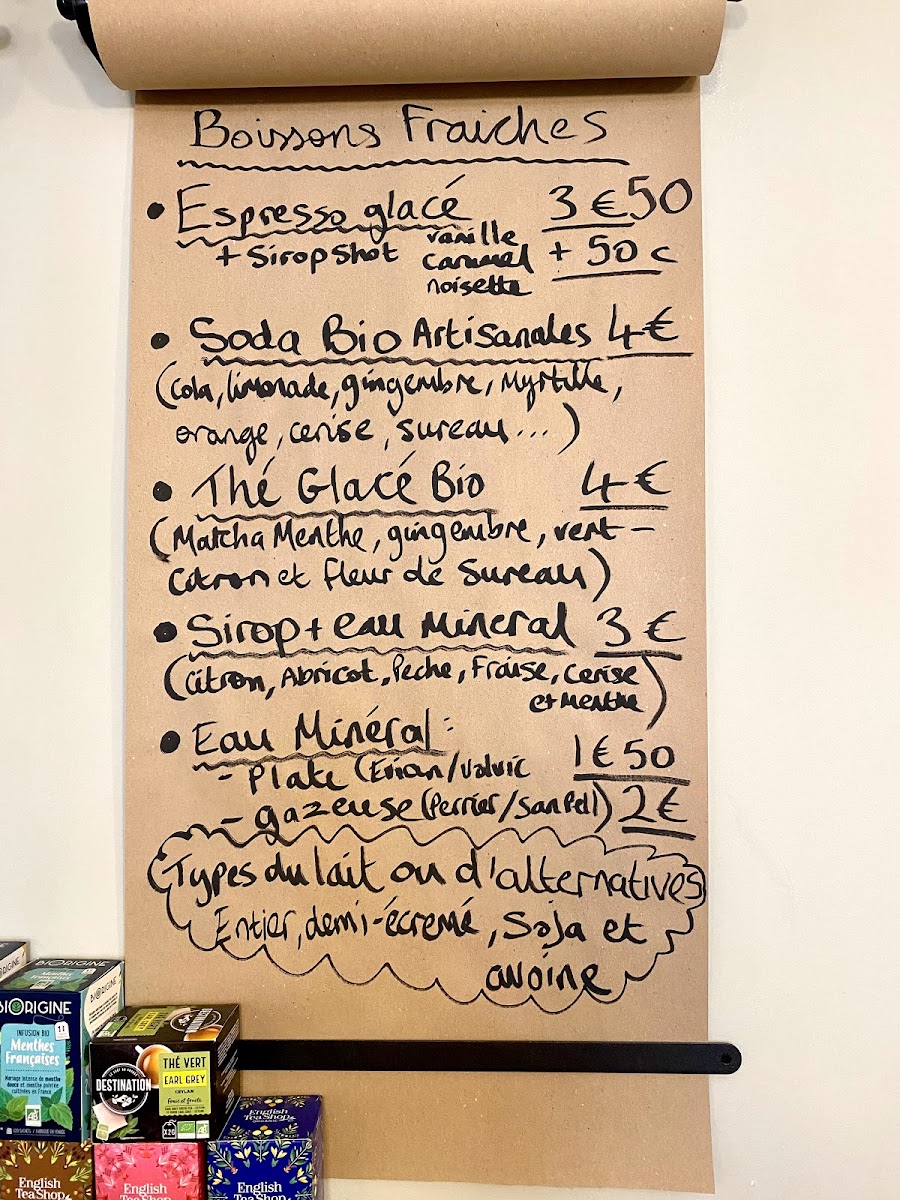 Boissons Fraiches
• Espresso glacé 3 € 50
+ Sirop Shot vanille caramel noisette + 50 c
• Soda Bio Artisanales 4 €
(Cola, limonade, gingembre, Myrtille,
orange, cerise, sureau...)
• Thé Glacé Bio 4 €
(Matcha Menthe, gingembre, vert -
Citron et fleur de Sureau)
• Sirop + eau Mineral 3 €
(Citron, Abricot, Peche, Fraise, Cerise
et Menthe)
• Eau Minéral:
- Plate (Evian/Volvic 1 € 50
- gazeuse (Perrier/San Pell) 2 €
Types du lait ou d'alternatives
Entier, demi-écremé, Soja et
avoine
BIORIGINE
BIORIGINE
INFUSION BIO
Menthes
Françaises
Mariage intense de menthe
douce et menthe poivrée
cultivées en France
AB
DESTINATION
THÉ VERT
EARL GREY
CEYLAN
X20
AB
English
Tea Shop
English
Tea Shop
English
Tea Shop
English
Tea Shop